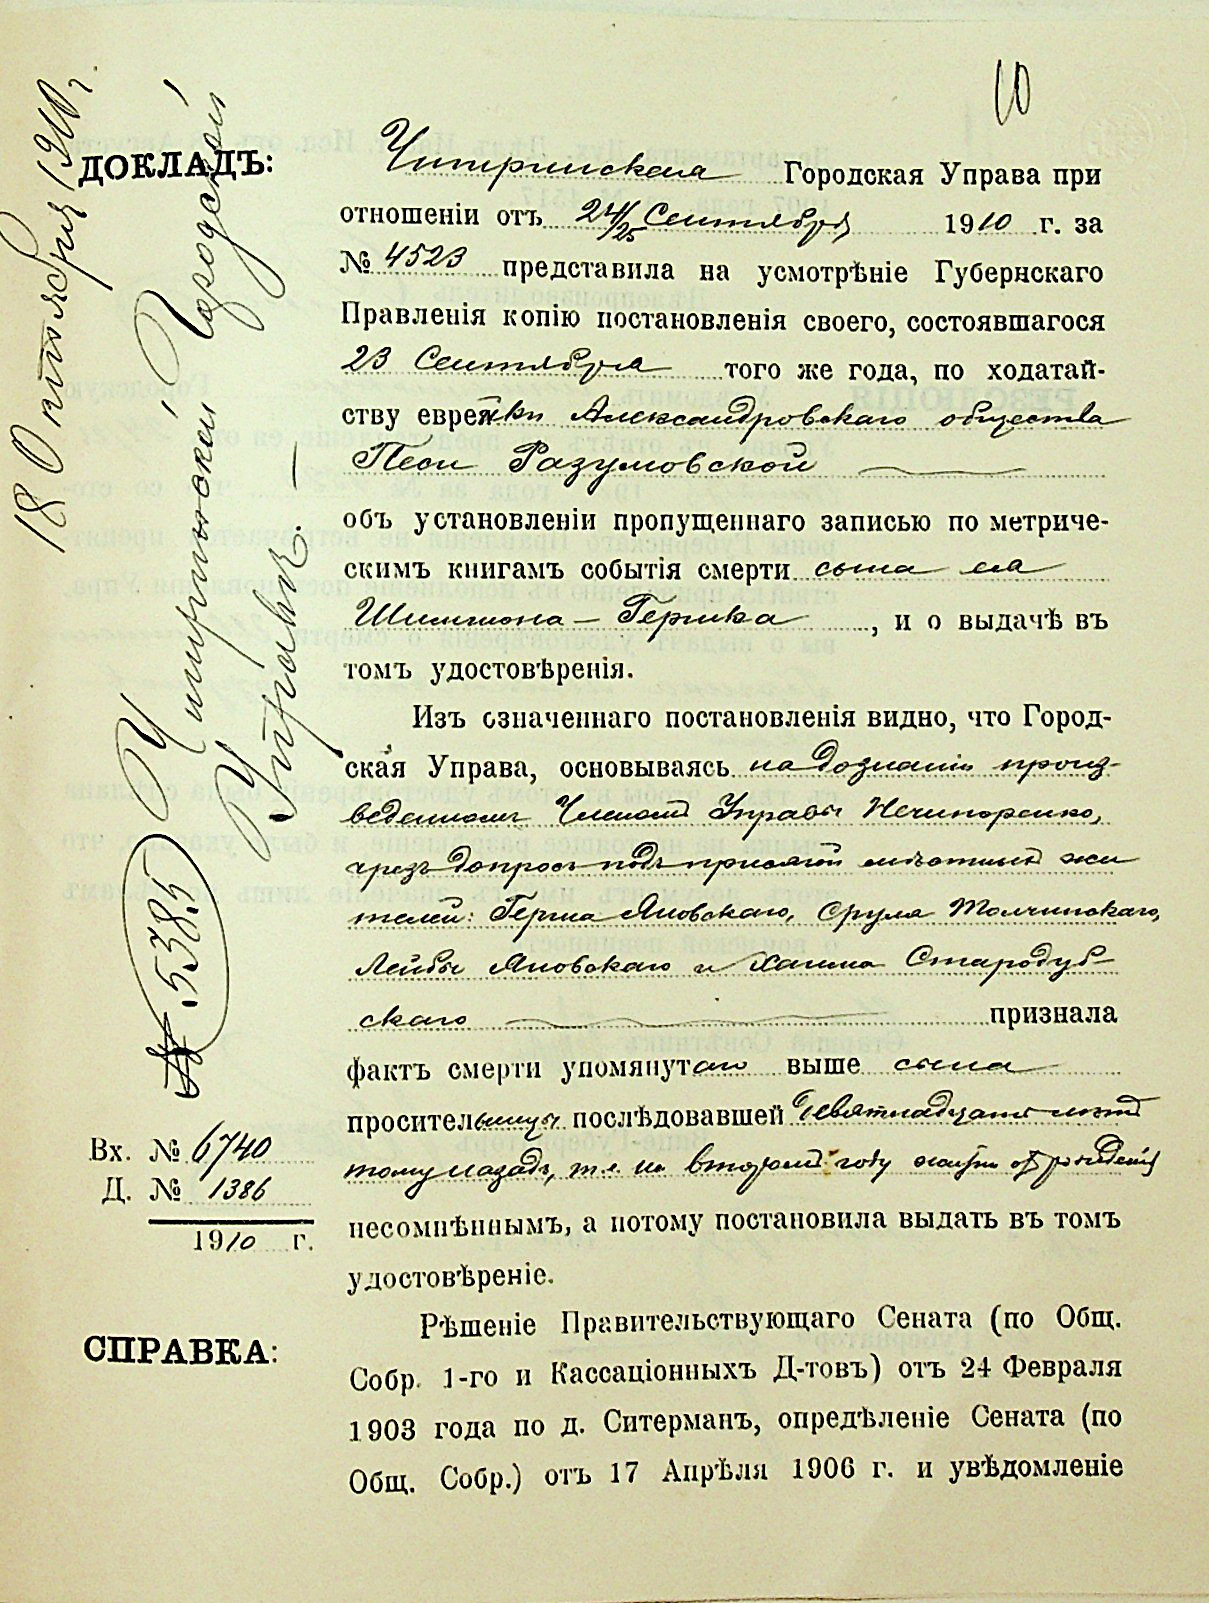 10
18 Октября 1910 г.
Чигиринской Городской
Управѣ. —
№ 5385
ДОКЛАДЪ:
Чигринская Городская Управа при
отношеніи отъ 24/25 Сентября 1910 г. за
№ 4523 представила на усмотрѣніе Губернскаго
Правленія копію постановленія своего, состоявшагося
23 Сентября того же года, по ходатай-
ству еврейки Александровскаго общества
Песи Разумовской
объ установленіи пропущеннаго записью по метриче-
скимъ книгамъ событія смерти сына ея
Шимшона-Гершка, и о выдачѣ въ
томъ удостовѣренія.
Изъ означеннаго постановленія видно, что Город-
ская Управа, основываясь на дознаніи произ-
веденномъ Членомъ Управы Нечипоренко,
чрезъ допросъ подъ присягой мѣстныхъ жи
телей: Герша Яновскаго, Сруля Толчинскаго,
Лейбы Яновскаго и Хаима Стародуб-
скаго признала
фактъ смерти упомянутаго выше сына
просительницы послѣдовавшей девятнадцать лѣтъ
тому назадъ, т.е. на второмъ году жизни отъ рожденія
несомнѣннымъ, а потому постановила выдать въ томъ
удостовѣреніе.
Вх. № 6740
Д. № 1386
1910 г.
СПРАВКА:
Рѣшеніе Правительствующаго Сената (по Общ.
Собр. 1-го и Кассаціонныхъ Д-товъ) отъ 24 Февраля
1903 года по д. Ситерманъ, опредѣленіе Сената (по
Общ. Собр.) отъ 17 Апрѣля 1906 г. и увѣдомленіе